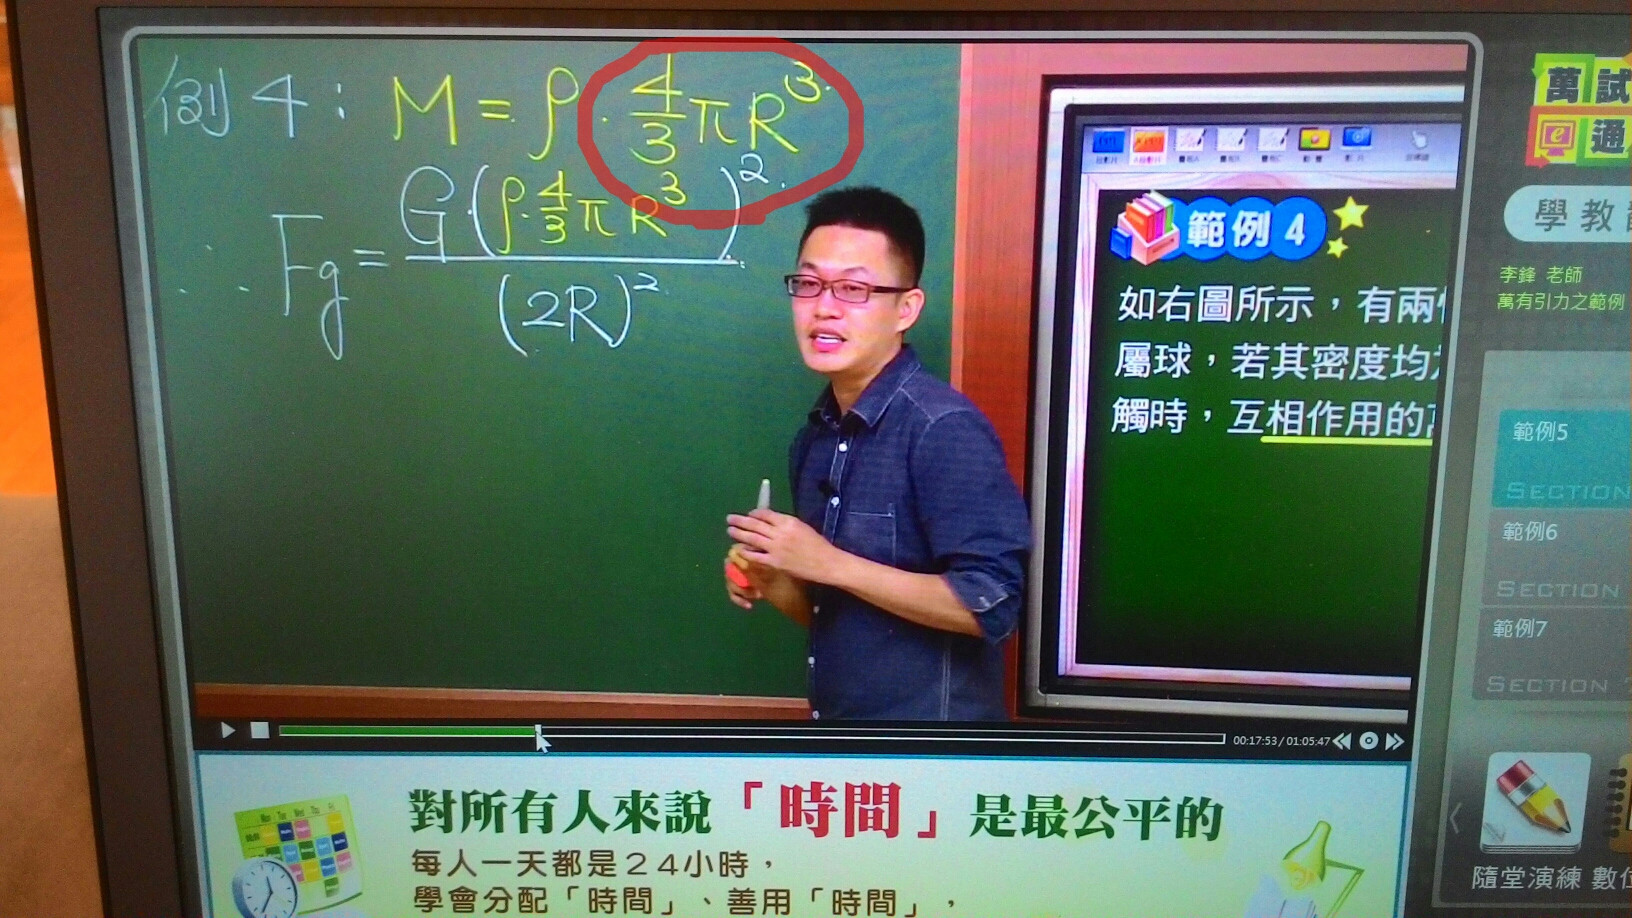 例4: M = ρ · 4/3 πR³
∴ Fg = G·(ρ·4/3 πR³)² / (2R)²
範例 4
如右圖所示，有兩
屬球，若其密度均
觸時，互相作用的
萬試
e通
學教
李鋒 老師
萬有引力之範例
範例5
SECTION
範例6
SECTION
範例7
SECTION
00:17:53 / 01:05:47
對所有人來說「時間」是最公平的
每人一天都是24小時，
學會分配「時間」、善用「時間」，
隨堂演練 數位